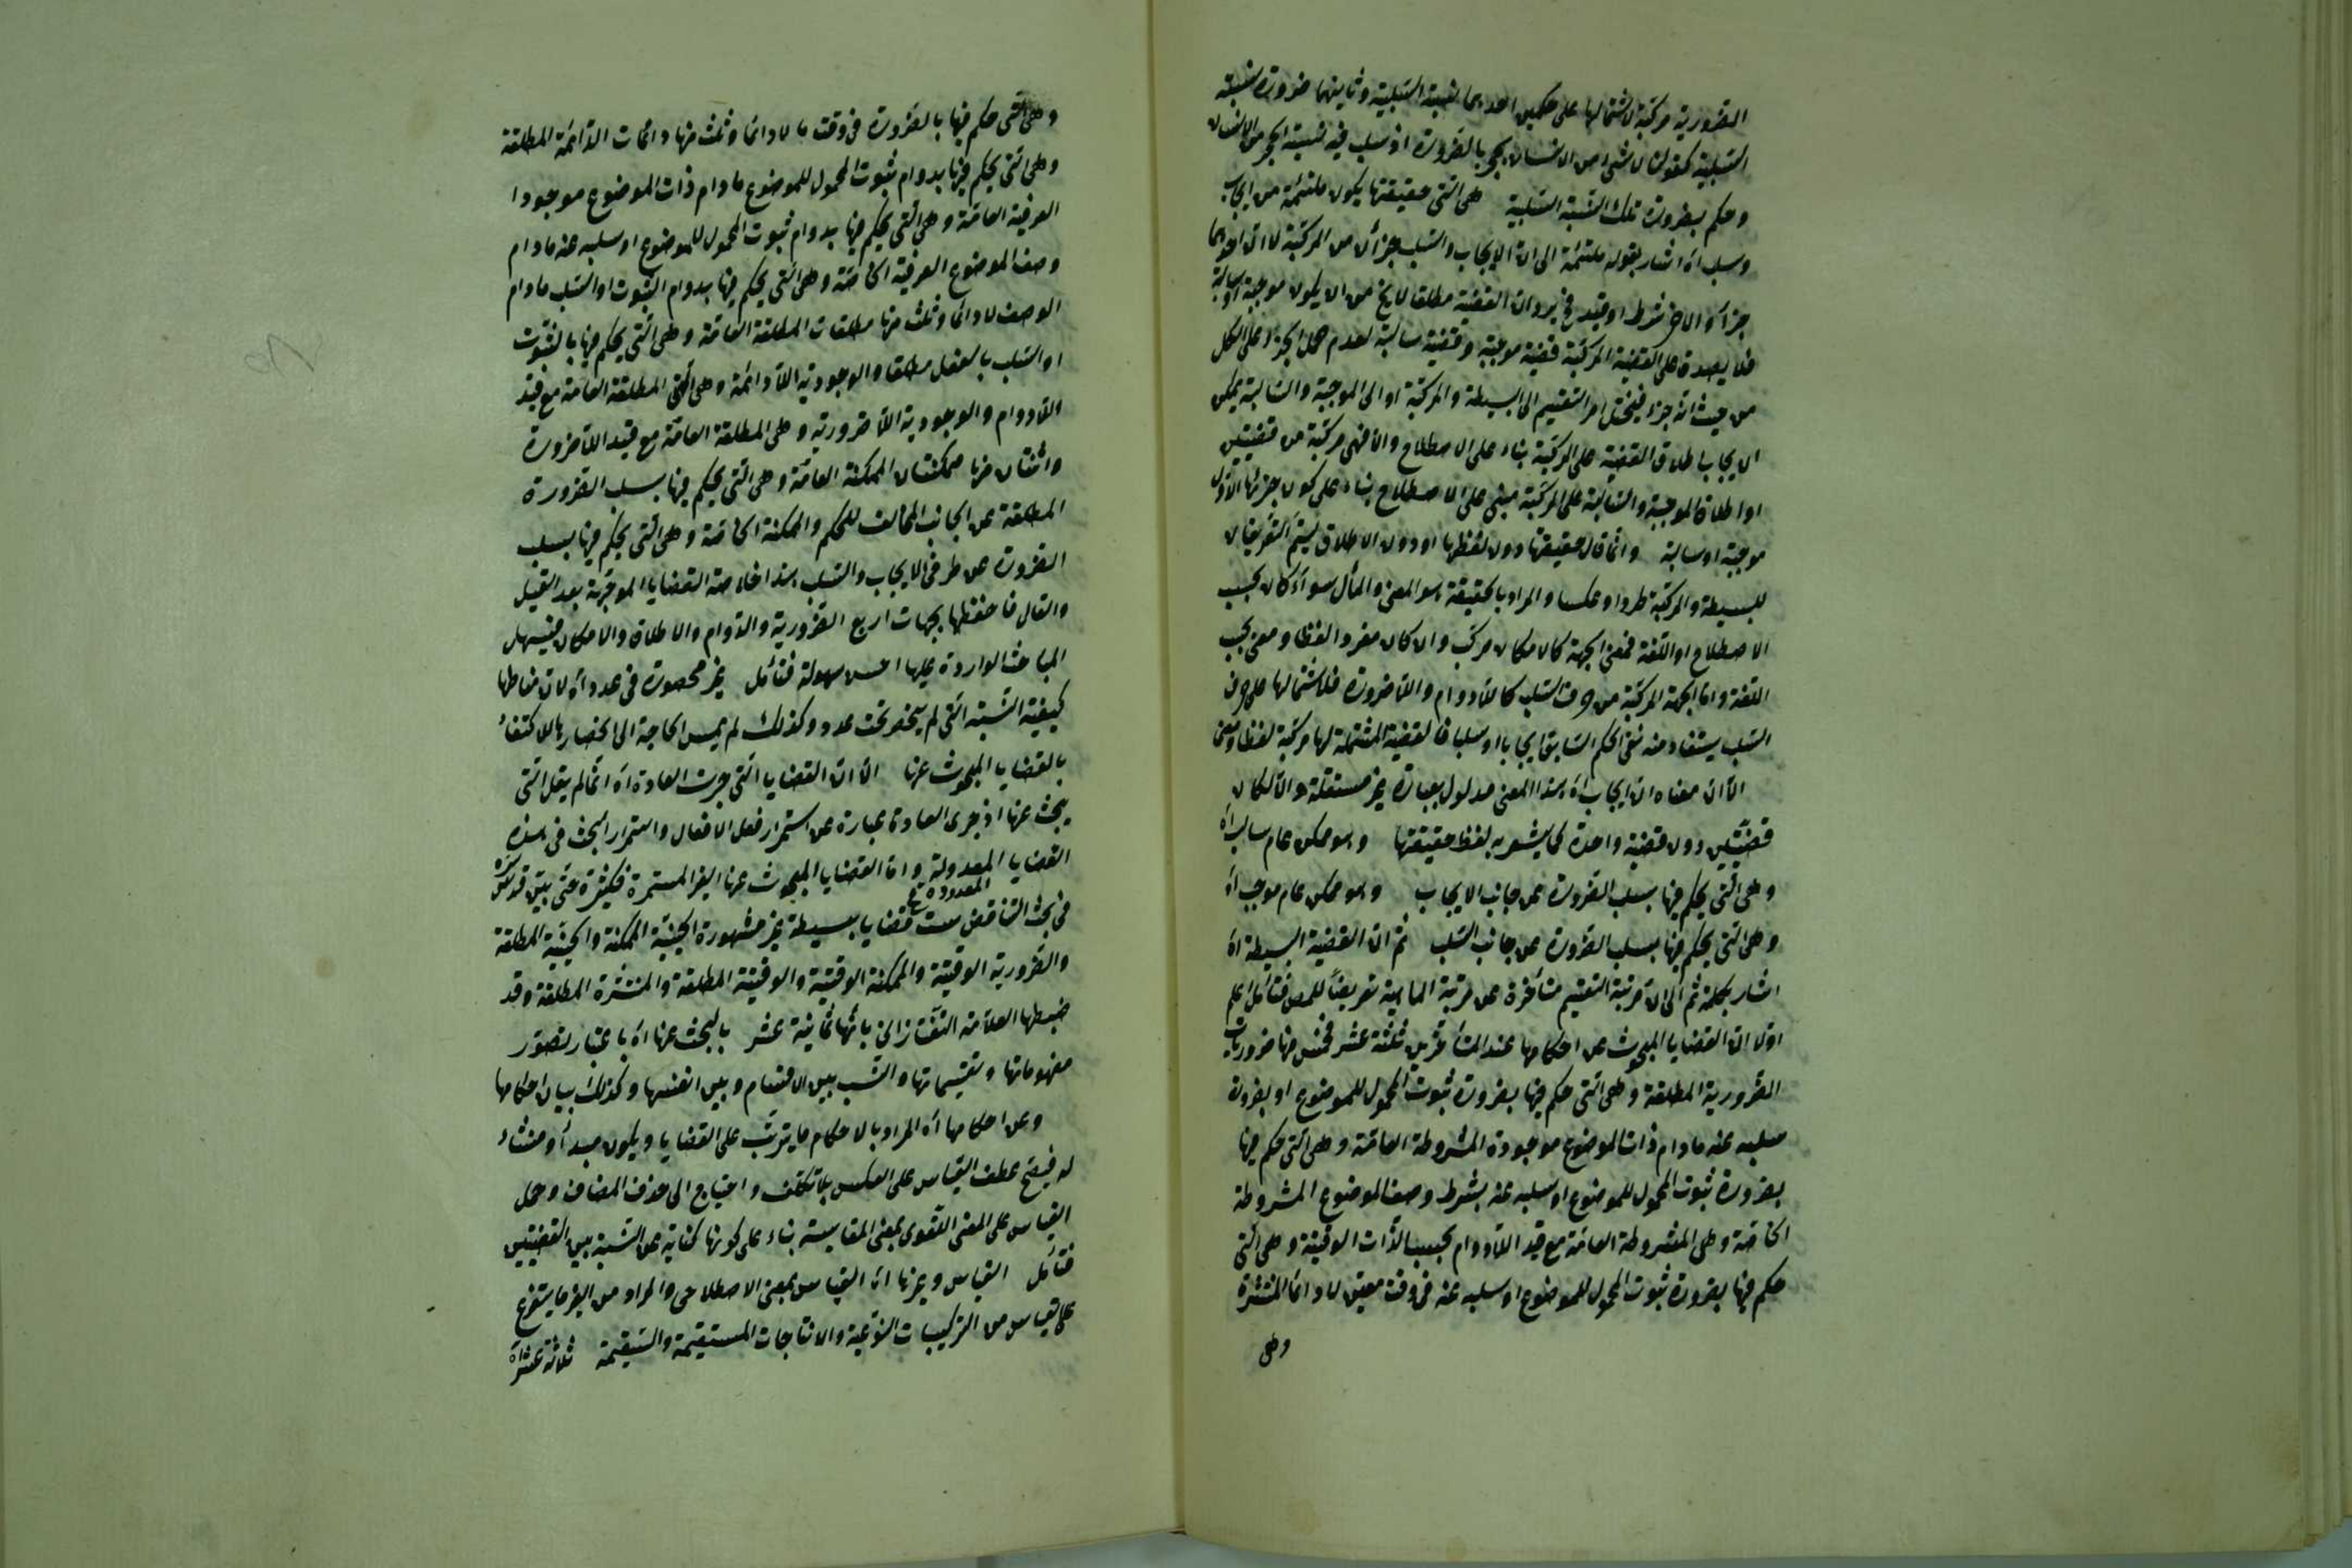 الضرورية مركبة لاشتمالها على حكمين احدهما نسبة السلبية وثانيهما ضرورة نسبة
السلبية كقولنا لا شئ من الانسان بحجر بالضرورة اذ سلب فيه نسبة الحجر من الانسان
وحكم بضرورة تلك النسبة السلبية هى التى حقيقتها يكون ملتئمة من ايجاب
وسلب اه اشار بقوله ملتئمة الى ان الايجاب والسلب جزآن من المركبة لا ان احدهما
جزء والاخر شرط او قيد فح يرد ان القضية مطلقا لا يخ من ان يكون موجبة او سالبة
فلا يصدق على القضية المركبة قضية موجبة وقضية سالبة لعدم حمل الجزء على الكل
من حيث انه جزء فيختل امر التقسيم الى البسيطة والمركبة او الى الموجبة والسالبة يمكن
ان يجاب اطلاق القضية على المركبة بناء على الاصطلاح والا فهى مركبة من قضيتين
او اطلاق الموجبة والسالبة على المركبة مبنى على الاصطلاح بناء على كون جزئها الاول
موجبة او سالبة وانما قال حقيقتها دون لفظها او دون الاطلاق ليتم التعريفان
للبسيطة والمركبة طردا وعكسا والمراد بالحقيقة هو المعنى والمآل سواء كان بحسب
الاصطلاح او اللغة فمعنى الجهة كالامكان مركب وان كان مفردا لفظا ومعنى بحسب
اللغة واما الجهة المركبة من حرف السلب كاللادوام واللاضرورة فلاشتمالها على حرف
السلب يستفاد منه نفى الحكم السابق ايجابا او سلبا فالقضية المشتملة لها مركبة لفظا ومعنى
الا ان معناه ان ايجاب اه هذا المعنى مدلول بعبارة غير مستقلة والا لكان
قضيتين دون قضية واحدة كما يشعر به لفظ حقيقتها وهو ممكن عام سالب اه
وهى التى يحكم فيها بسلب الضرورة عن جانب الايجاب وهو ممكن عام موجب اه
وهى التى يحكم فيها بسلب الضرورة عن جانب السلب ثم ان القضية البسيطة اه
اشار بكلمة ثم الى ان مرتبة التقسيم متأخرة عن مرتبة الماهية تعريضا للمص فتأمل اعلم
اولا ان القضايا المبحوث عن احكامها عند المتأخرين ثلثة عشر فخمس منها ضروريات
الضرورية المطلقة وهى التى حكم فيها بضرورة ثبوت المحمول للموضوع او بضرورة
سلبه عنه مادام ذات الموضوع موجودة المشروطة العامة وهى التى حكم فيها
بضرورة ثبوت المحمول للموضوع او سلبه عنه بشرط وصف الموضوع المشروطة
الخاصة وهى المشروطة العامة مع قيد اللادوام بحسب الذات الوقتية وهى التى
حكم فيها بضرورة ثبوت المحمول للموضوع او سلبه عنه فى وقت معين لا دائما المنتشرة
وهى
وهى التى حكم فيها بالضرورة فى وقت ما لا دائما وثلث منها دائمات الدائمة المطلقة
وهى التى يحكم فيها بدوام ثبوت المحمول للموضوع مادام ذات الموضوع موجودا
العرفية العامة وهى التى يحكم فيها بدوام ثبوت المحمول للموضوع او سلبه عنه مادام
وصف الموضوع العرفية الخاصة وهى التى يحكم فيها بدوام الثبوت او السلب مادام
الوصف لا دائما وثلث منها مطلقات المطلقة العامة وهى التى يحكم فيها بالثبوت
او السلب بالفعل مطلقا والوجودية اللادائمة وهى المطلقة العامة مع قيد
اللادوام والوجودية اللاضرورية وهى المطلقة العامة مع قيد اللاضرورة
واثنتان منها ممكنتان الممكنة العامة وهى التى يحكم فيها بسلب الضرورة
المطلقة عن الجانب المخالف للحكم والممكنة الخاصة وهى التى يحكم فيها بسلب
الضرورة عن طرفى الايجاب والسلب هذا خلاصة القضايا الموجهة بعد القيل
والقال فاحفظها بجهات اربع الضرورية والدوام والاطلاق والامكان فيسهل
المباحث الواردة عليها احسن سهولة فتأمل غير محصورة فى عدد اه لان مناطها
كيفية النسبة التى لم ينحصر تحت عدد وكذلك لم يمس الحاجة الى انحصارها للاكتفاء
بالقضايا المبحوث عنها الا ان القضايا التى جرت العادة اه انما لم يقل التى
يبحث عنها اذ جرى العادة عبارة عن استمرار فعل الافعال واستمرار البحث فى هذه
القضايا المعدولة واما القضايا المبحوث عنها الغير المستمرة فكثيرة حتى بين قدس سره
المعدودة
فى بحث التناقض ست قضايا بسيطة غير مشهورة الحينية الممكنة والحينية المطلقة
والضرورية الوقتية والممكنة الوقتية والوقتية المطلقة والمنتشرة المطلقة وقد
ضبطها العلامة التفتازانى بانها ثمانية عشر بالبحث عنها اه باعتبار تصور
مفهوماتها وتقسيماتها والنسب بين الاقسام وبين انفسها وكذلك بيان احكامها
وعن احكامها اه المراد بالاحكام ما يترتب على القضايا ويكون مبدأ ومنشاء
له فيصح عطف القياس على العكس بلا تكلف واحتياج الى حذف المضاف وحمل
القياس على المعنى اللغوى بمعنى المقايسة بناء على كونها كناية عن النسبة بين القضيتين
فتأمل القياس وغيرها اه القياس بمعنى الاصطلاحى والمراد من الغير ما يتفرع
على القياس من التركيبات النوعية والانتاجات المستقيمة والسقيمة ثلاثة عشر اه